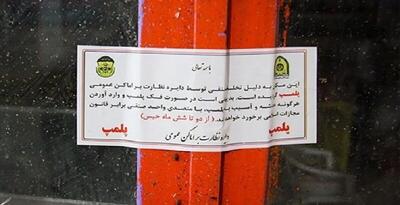 باسمه تعالی
این مکان به دلیل تخلف صنفی توسط دایره نظارت بر اماکن عمومی
پلمب گردیده است. بدیهی است در صورت فک پلمب و وارد آوردن
هرگونه خدشه و آسیب به پلمب، با متصدی واحد صنفی برابر قانون
مجازات اسلامی برخورد خواهد شد. (از دو تا شش ماه حبس)
پلمپ
دایره نظارت بر اماکن عمومی
پلمپ